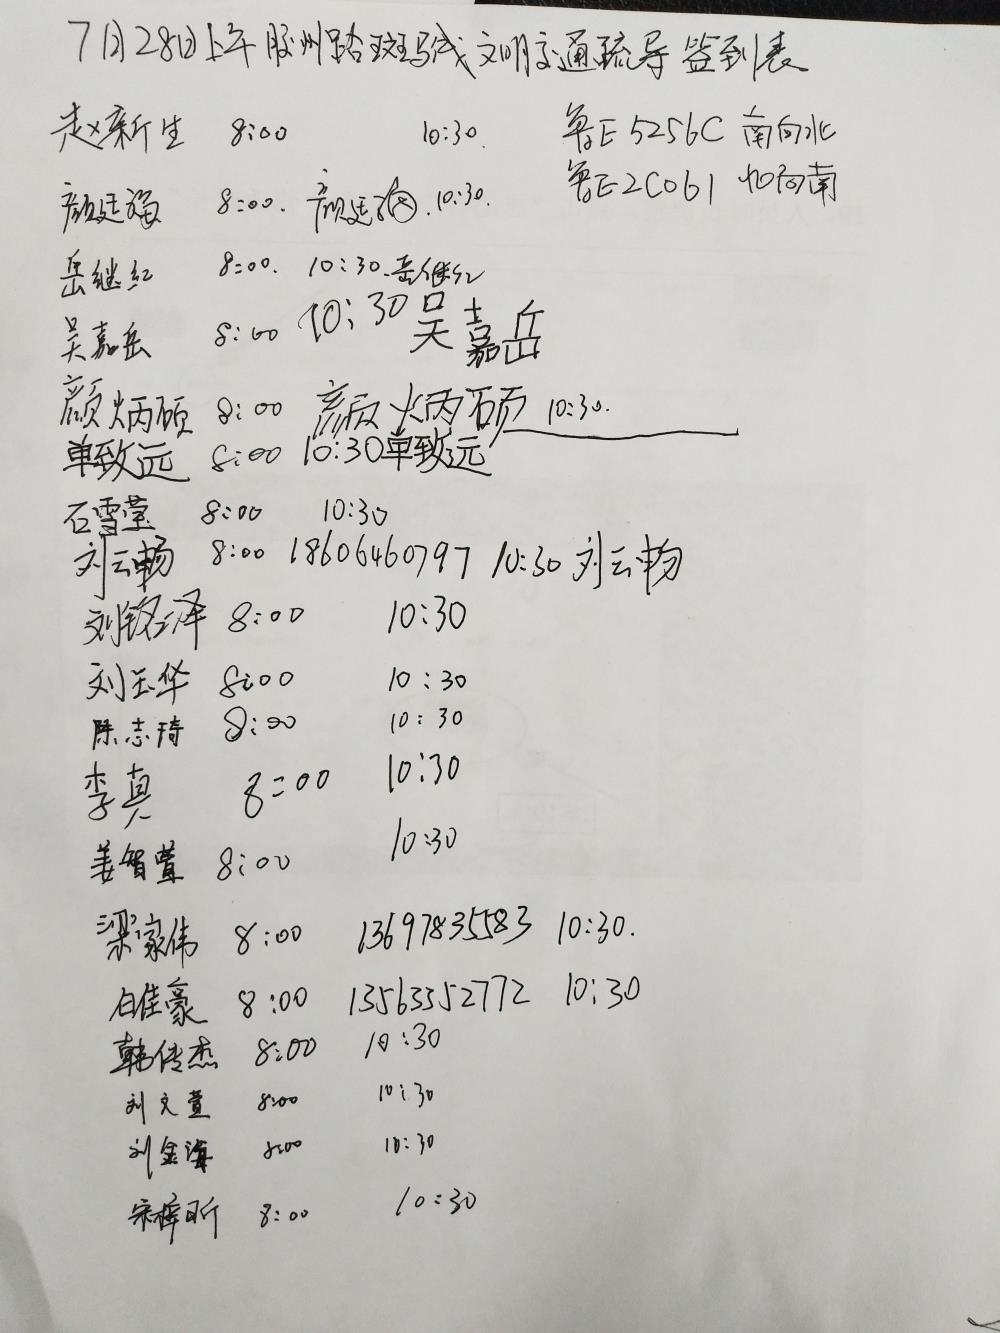 7月28日上午胶州路斑马线文明交通疏导签到表
赵新生 8:00 10:30. 鲁E5256C 南向北
鲁E2C061 北向南
颜廷福 8:00. 颜廷福.10:30.
岳继红 8:00. 10:30.岳继红
吴嘉岳 8:00 10:30吴嘉岳
颜炳硕 8:00 颜炳硕 10:30.
单致远 8:00 10:30单致远
石雪莹 8:00 10:30
刘云畅 8:00 18606460797 10:30 刘云畅
刘铭泽 8:00 10:30
刘玉华 8:00 10:30
陈志琦 8:00 10:30
李真 8:00 10:30
姜智萱 8:00 10:30
梁家伟 8:00 13697835583 10:30.
白佳豪 8:00 13563352772 10:30
韩传杰 8:00 10:30
刘文萱 8:00 10:30
刘金海 8:00 10:30
宋梓昕 8:00 10:30